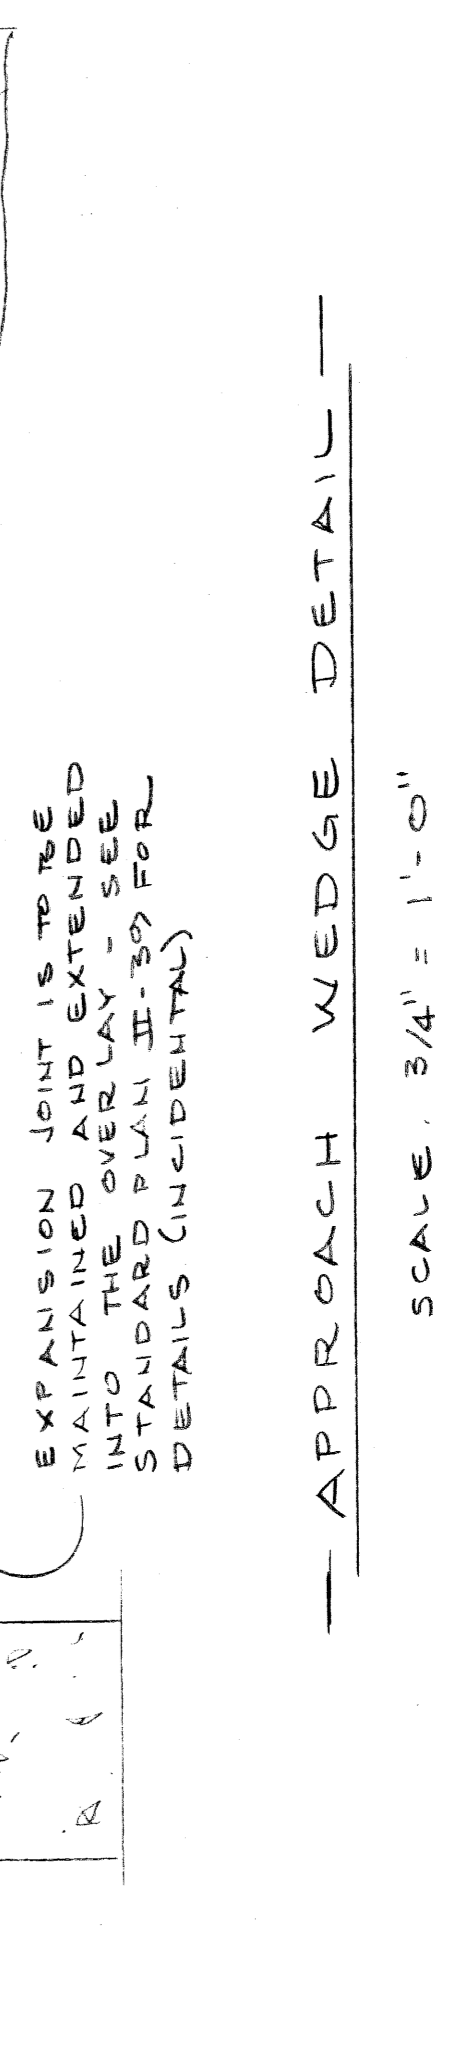 EXPANSION JOINT IS TO BE
MAINTAINED AND EXTENDED
INTO THE OVERLAY - SEE
STANDARD PLAN II-39 FOR
DETAILS (INCIDENTAL)
— APPROACH WEDGE DETAIL —
SCALE. 3/4" = 1'-0"